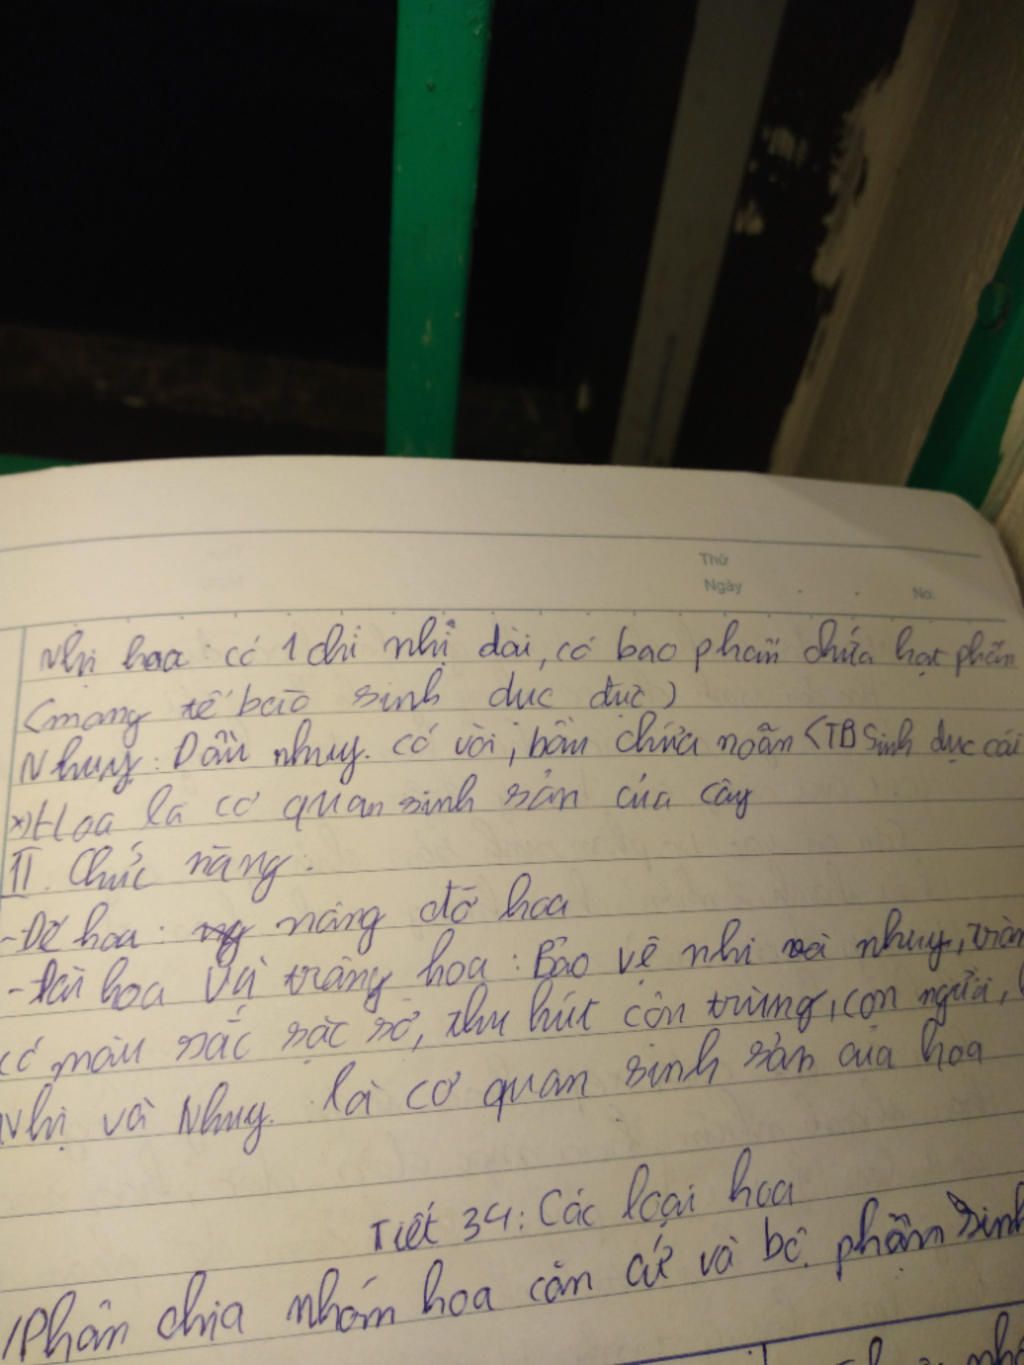 Thứ
Ngày No.
Nhị hoa: có 1 chỉ nhị dài, có bao phấn chứa hạt phấn
(mang tế bào sinh dục đực)
Nhuỵ: Đầu nhuỵ. có vòi, bầu chứa noãn (TB sinh dục cái
*) Hoa là cơ quan sinh sản của cây
II. Chức năng:
- Đế hoa: nâng đỡ hoa
- đài hoa và tràng hoa: Bảo vệ nhị và nhuỵ, tràn
có màu sắc sặc sỡ, thu hút côn trùng, con người,
Nhị và Nhuỵ. là cơ quan sinh sản của hoa
Tiết 34: Các loại hoa
1/Phân chia nhóm hoa căn cứ và bộ phận sinh